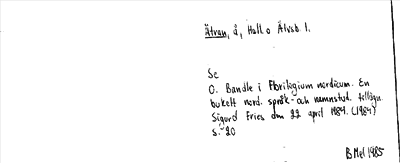 Ätran, å, Hall o Älvsb. l.
Se
O. Bandle i Florilegium nordicum. En
bukett nord. språk- och namnstud. tillägn.
Sigurd Fries den 22 april 1984. (1984)
s. 20
B Mel 1985